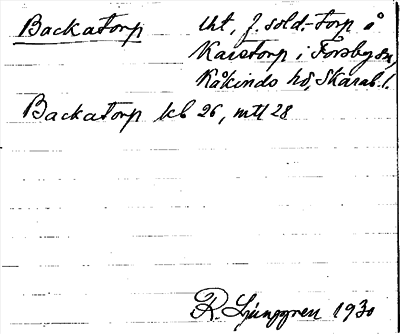 Backatorp uht, f. sold.-torp å
Karstorp i Forsby sn,
Kåkinds hd, Skarab. l.
Backatorp kb 26, mtl 28
R. Ljunggren 1930